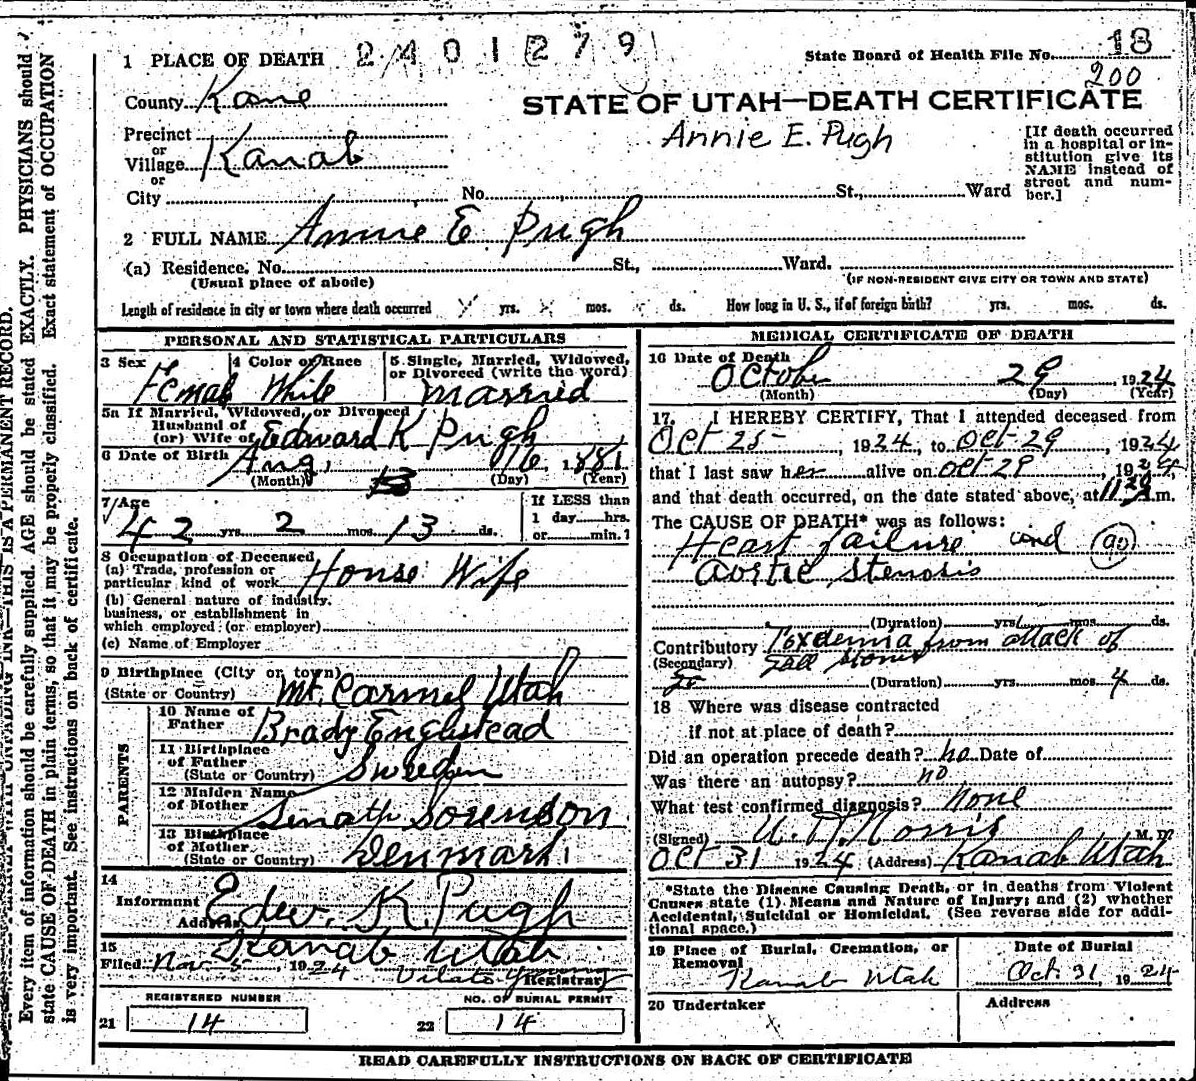 1 PLACE OF DEATH 2401279 State Board of Health File No. 18
200
County Kane
STATE OF UTAH—DEATH CERTIFICATE
Precinct
or
Village Kanab
or
City No. St., Ward
Annie E. Pugh
[If death occurred
in a hospital or in-
stitution give its
NAME instead of
street and num-
ber.]
2 FULL NAME Annie E. Pugh
(a) Residence. No. St., Ward.
(Usual place of abode) (IF NON-RESIDENT GIVE CITY OR TOWN AND STATE)
Length of residence in city or town where death occurred yrs. mos. ds. How long in U. S., if of foreign birth? yrs. mos. ds.
PERSONAL AND STATISTICAL PARTICULARS
3 Sex Female
4 Color or Race White
5 Single, Married, Widowed,
or Divorced (write the word)
Married
5a If Married, Widowed, or Divorced
Husband of
(or) Wife of Edward K Pugh
6 Date of Birth Aug. 16 1881
(Month) (Day) (Year)
7 Age
42 yrs. 2 mos. 13 ds.
If LESS than
1 day hrs.
or min.?
8 Occupation of Deceased
(a) Trade, profession or
particular kind of work House Wife
(b) General nature of industry,
business, or establishment in
which employed (or employer)
(c) Name of Employer
9 Birthplace (City or town)
(State or Country) Mt. Carmel Utah
PARENTS
10 Name of
Father Brady Englstead
11 Birthplace
of Father
(State or Country) Sweden
12 Maiden Name
of Mother Sorenson
13 Birthplace
of Mother
(State or Country) Denmark
14
Informant Edw. K. Pugh
Address Kanab Utah
15
Filed Nov 5, 1924
Registrar
REGISTERED NUMBER
21 14
NO. OF BURIAL PERMIT
22 14
MEDICAL CERTIFICATE OF DEATH
16 Date of Death
October 29, 1924
(Month) (Day) (Year)
17. I HEREBY CERTIFY, That I attended deceased from
Oct 25 1924, to Oct 29, 1924
that I last saw her alive on Oct 29, 1924
and that death occurred, on the date stated above, at m.
The CAUSE OF DEATH* was as follows:
Heart failure and 90
aortic stenosis
(Duration) yrs. mos. ds.
Contributory Toxdemia from attack of
(Secondary) gall stones
(Duration) yrs. mos. 4 ds.
18 Where was disease contracted
if not at place of death?
Did an operation precede death? no Date of
Was there an autopsy? no
What test confirmed diagnosis? None
(Signed) Norris M. D?
Oct 31 1924 (Address) Kanab Utah
*State the Disease Causing Death, or in deaths from Violent
Causes state (1) Means and Nature of Injury; and (2) whether
Accidental, Suicidal or Homicidal. (See reverse side for addi-
tional space.)
19 Place of Burial, Cremation, or
Removal
Kanab Utah
Date of Burial
Oct. 31 1924
20 Undertaker
x
Address
READ CAREFULLY INSTRUCTIONS ON BACK OF CERTIFICATE
Every item of information should be carefully supplied. AGE should be stated EXACTLY. PHYSICIANS should
state CAUSE OF DEATH in plain terms, so that it may be properly classified. Exact statement of OCCUPATION
is very important. See instructions on back of certificate.